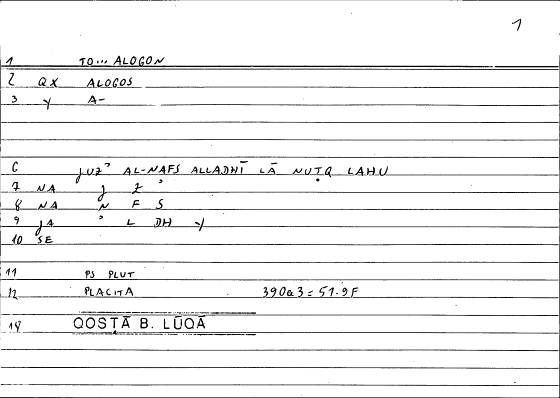 1
1 TO... ALOGON
2 QX ALOGOS
3 Y A-
6 JUZʾ AL-NAFS ALLADHĪ LĀ NUṬQ LAHU
7 NA J Z ʾ
8 NA N F S
9 JA ʾ L DH Y
10 SE
11 PS PLUT
12 PLACITA 390a3 = 51.9F
14 QOSṬĀ B. LŪQĀ